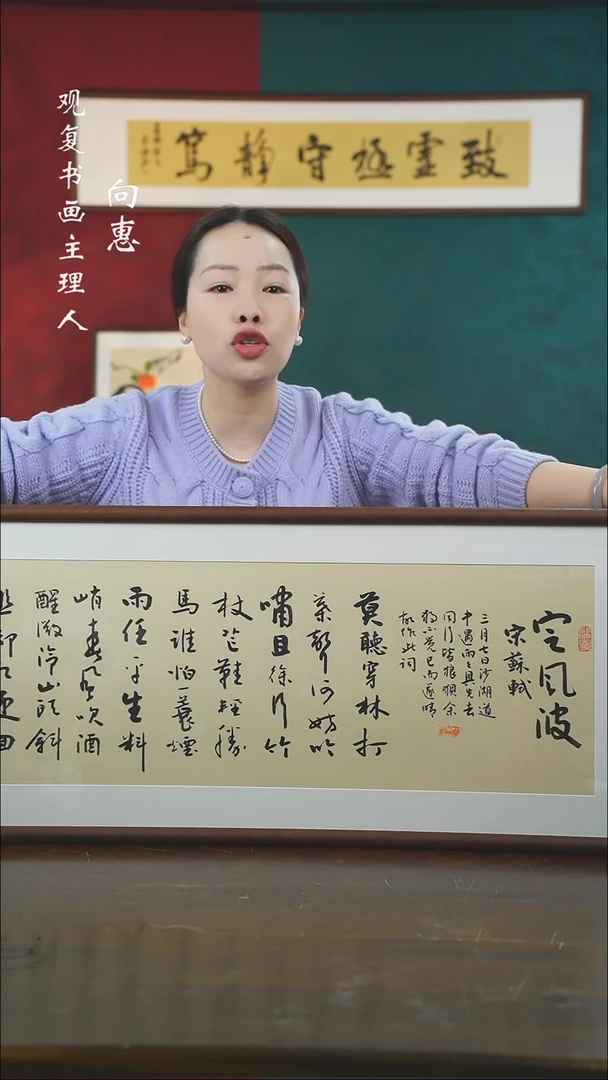 观复书画主理人
向惠
致虛極守靜篤
定風波
宋蘇軾
三月七日沙湖道
中遇雨雨具先去
同行皆狼狽余
獨不覺已而遂晴
故作此詞
莫聽穿林打
葉聲何妨吟
嘯且徐行竹
杖芒鞋輕勝
馬誰怕一蓑煙
雨任平生料
峭春風吹酒
醒微冷山頭斜